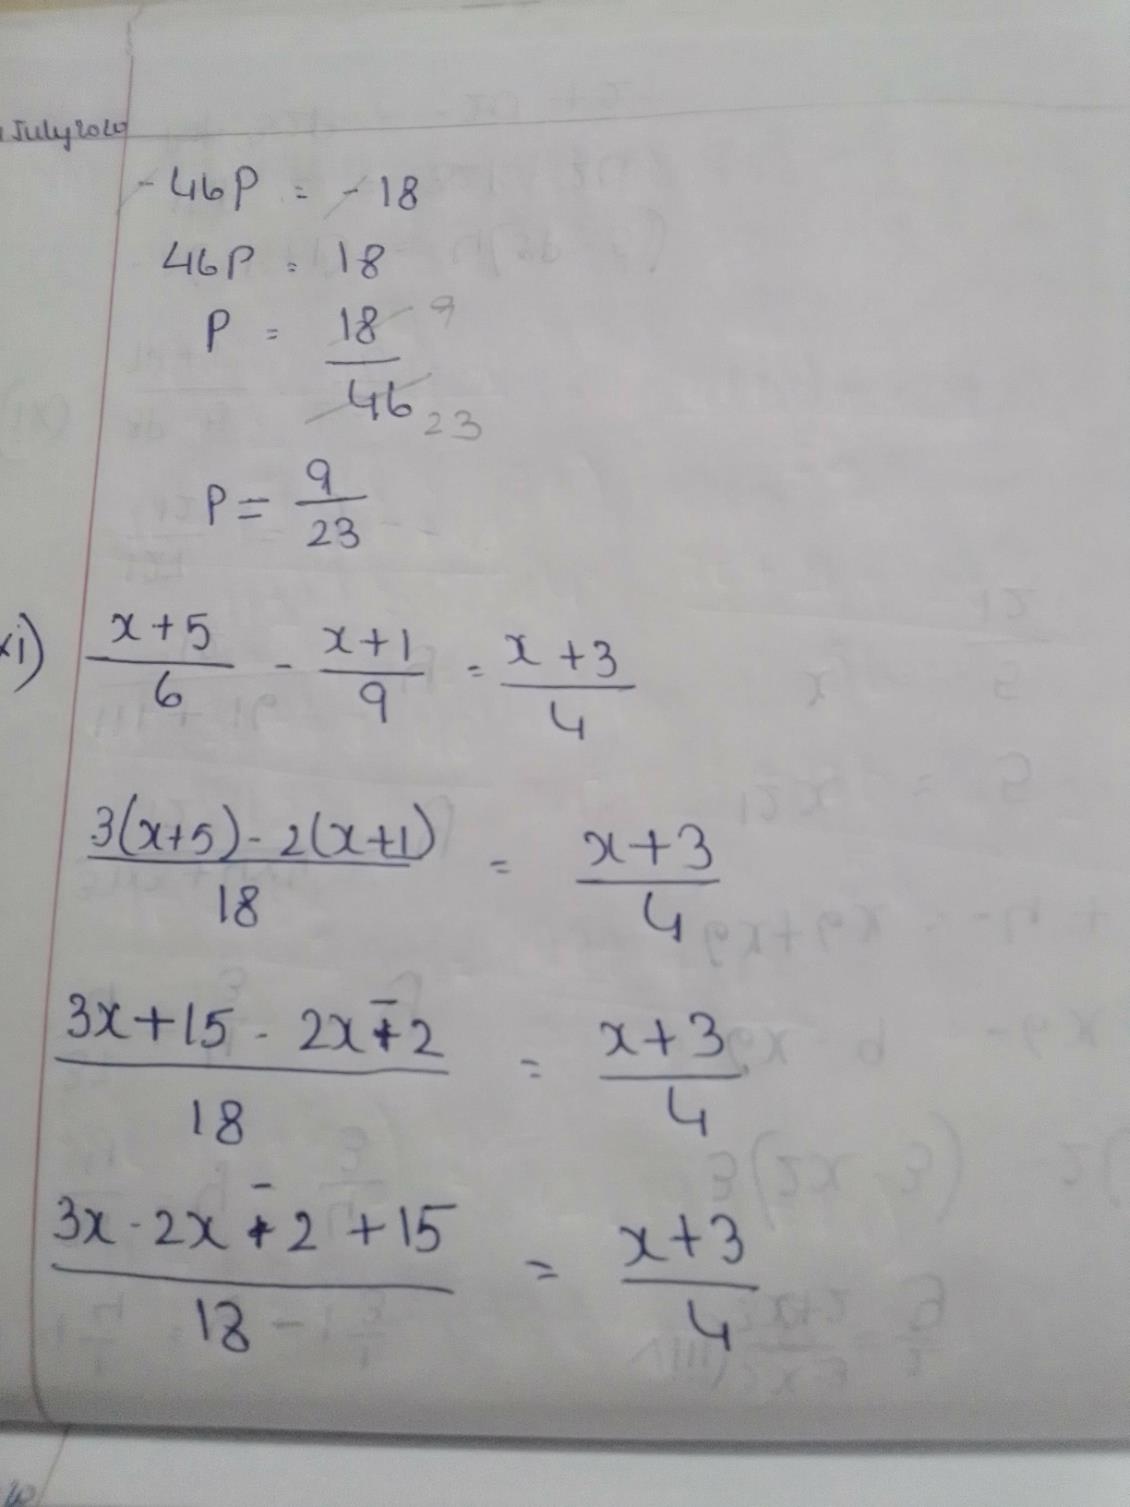 July 2020
-46P = -18
46P = 18
P = 18/46 9 23
P = 9/23
xi) x+5/6 - x+1/9 = x+3/4
3(x+5) - 2(x+1)/18 = x+3/4
3x+15 - 2x - 2/18 = x+3/4
3x - 2x - 2 + 15/18 = x+3/4